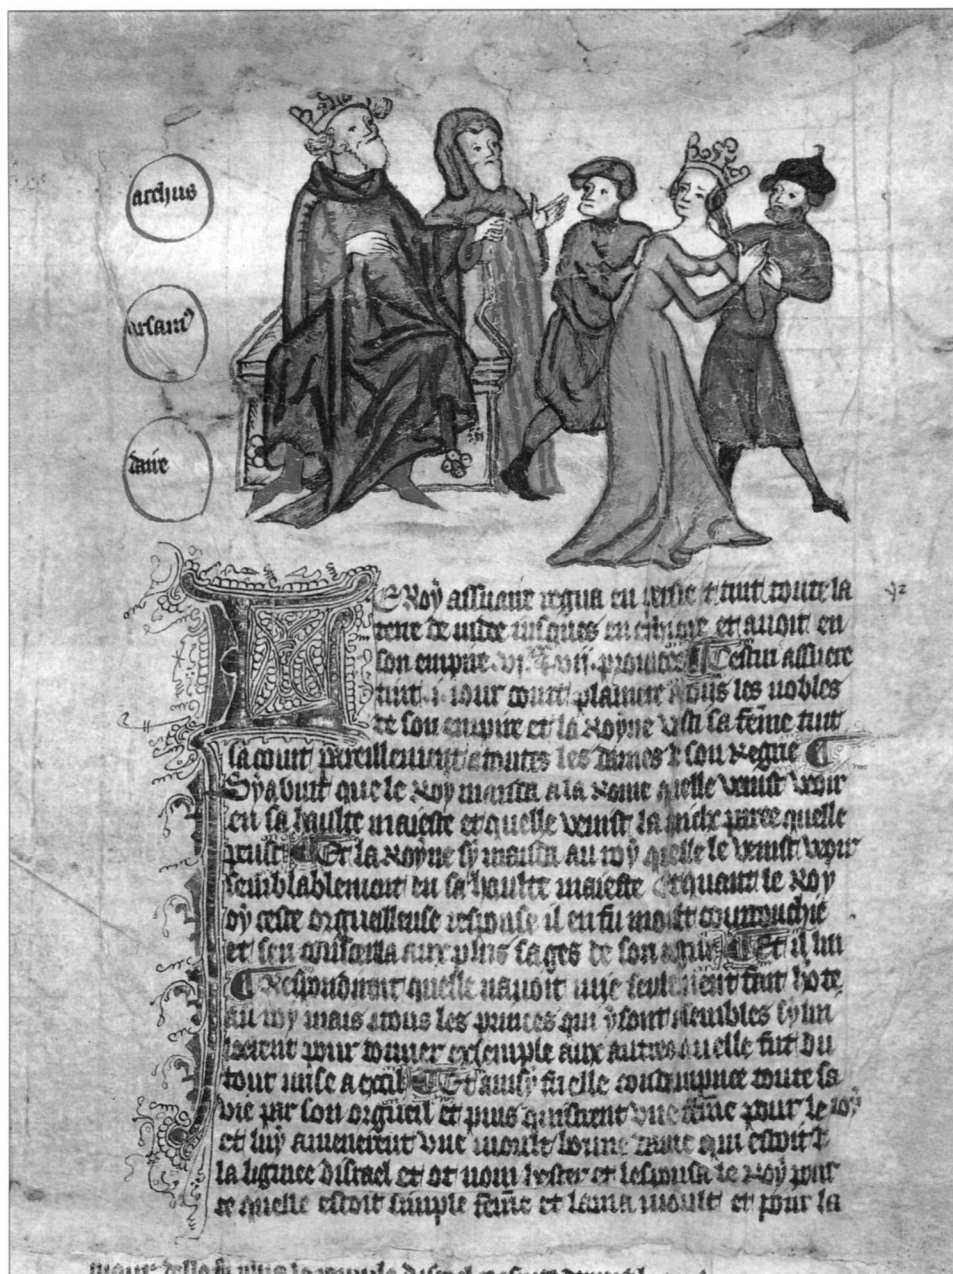 archus
arsam⁹
daire
LE Roy assuaire regna en perse et tint toute la
terre de inde iusques en ethiope et auoit en
son empire vi.xx vii. prouinces Cestui assuere
tint .i. iour court planiere a tous les nobles
de son empire et la Royne vasti sa feme tint
sa court pareillement a toutes les dames de son Regne
Sy aduint que le Roy manda a la Roine quelle venist veoir
en sa haulte maieste et quelle venist la mielx paree quelle
peust Et la Royne sy manda au roy quelle le venist veoir
semblablement en sa haulte maieste Et quant le Roy
oy ceste orgueilleuse response il en fu moult courrouchie
et sen conseilla aux plus sages de son Et il lui
Respondirent quelle nauoit mie seulement fait hote
au roy mais a tous les princes qui y sont sy lui
pour donner exsemple aux autres quelle fut du
tout mise a exil Et ainsy fu elle condempnee toute sa
vie par son orgueil et puis quistrent vne feme pour le roy
et luy amenerent vne moult bonne dame qui estoit de
la lignee disrael et ot nom hester et lespousa le Roy pour
ce quelle estoit simple feme et lama moult et pour la